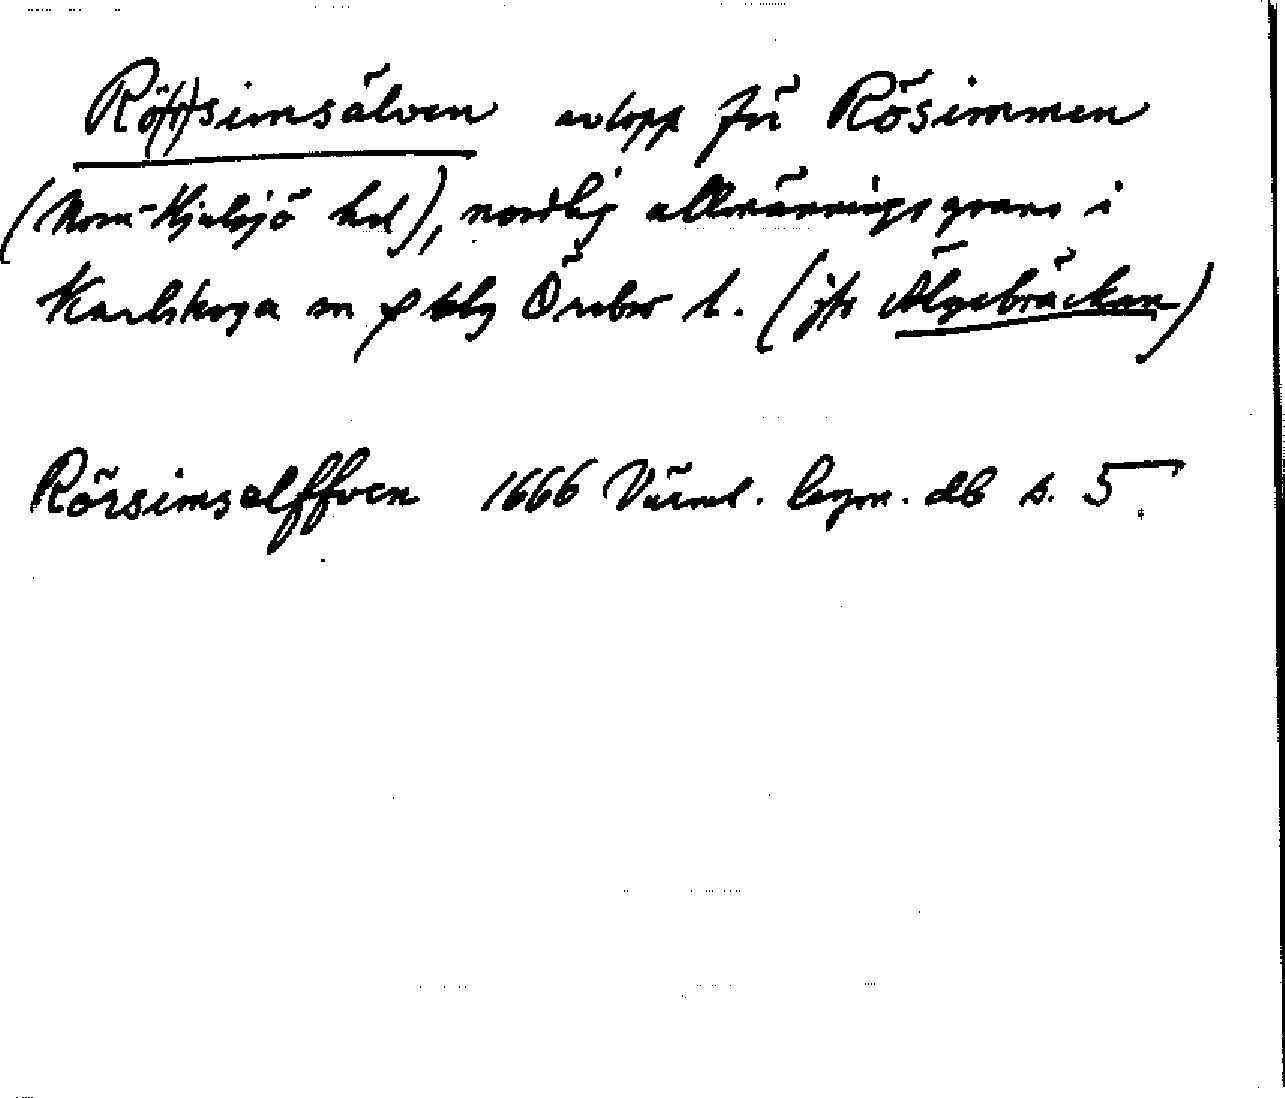 Rö(r)simsälven avlopp för Rösimmen
(Nora-Hjulsjö hd), nordlig allmänningsgräns i
Karlskoga sn o bslg Örebro l. (jfr Älgebäcken)
Rörsimselffven 1666 Värml. lagm. db s. 5